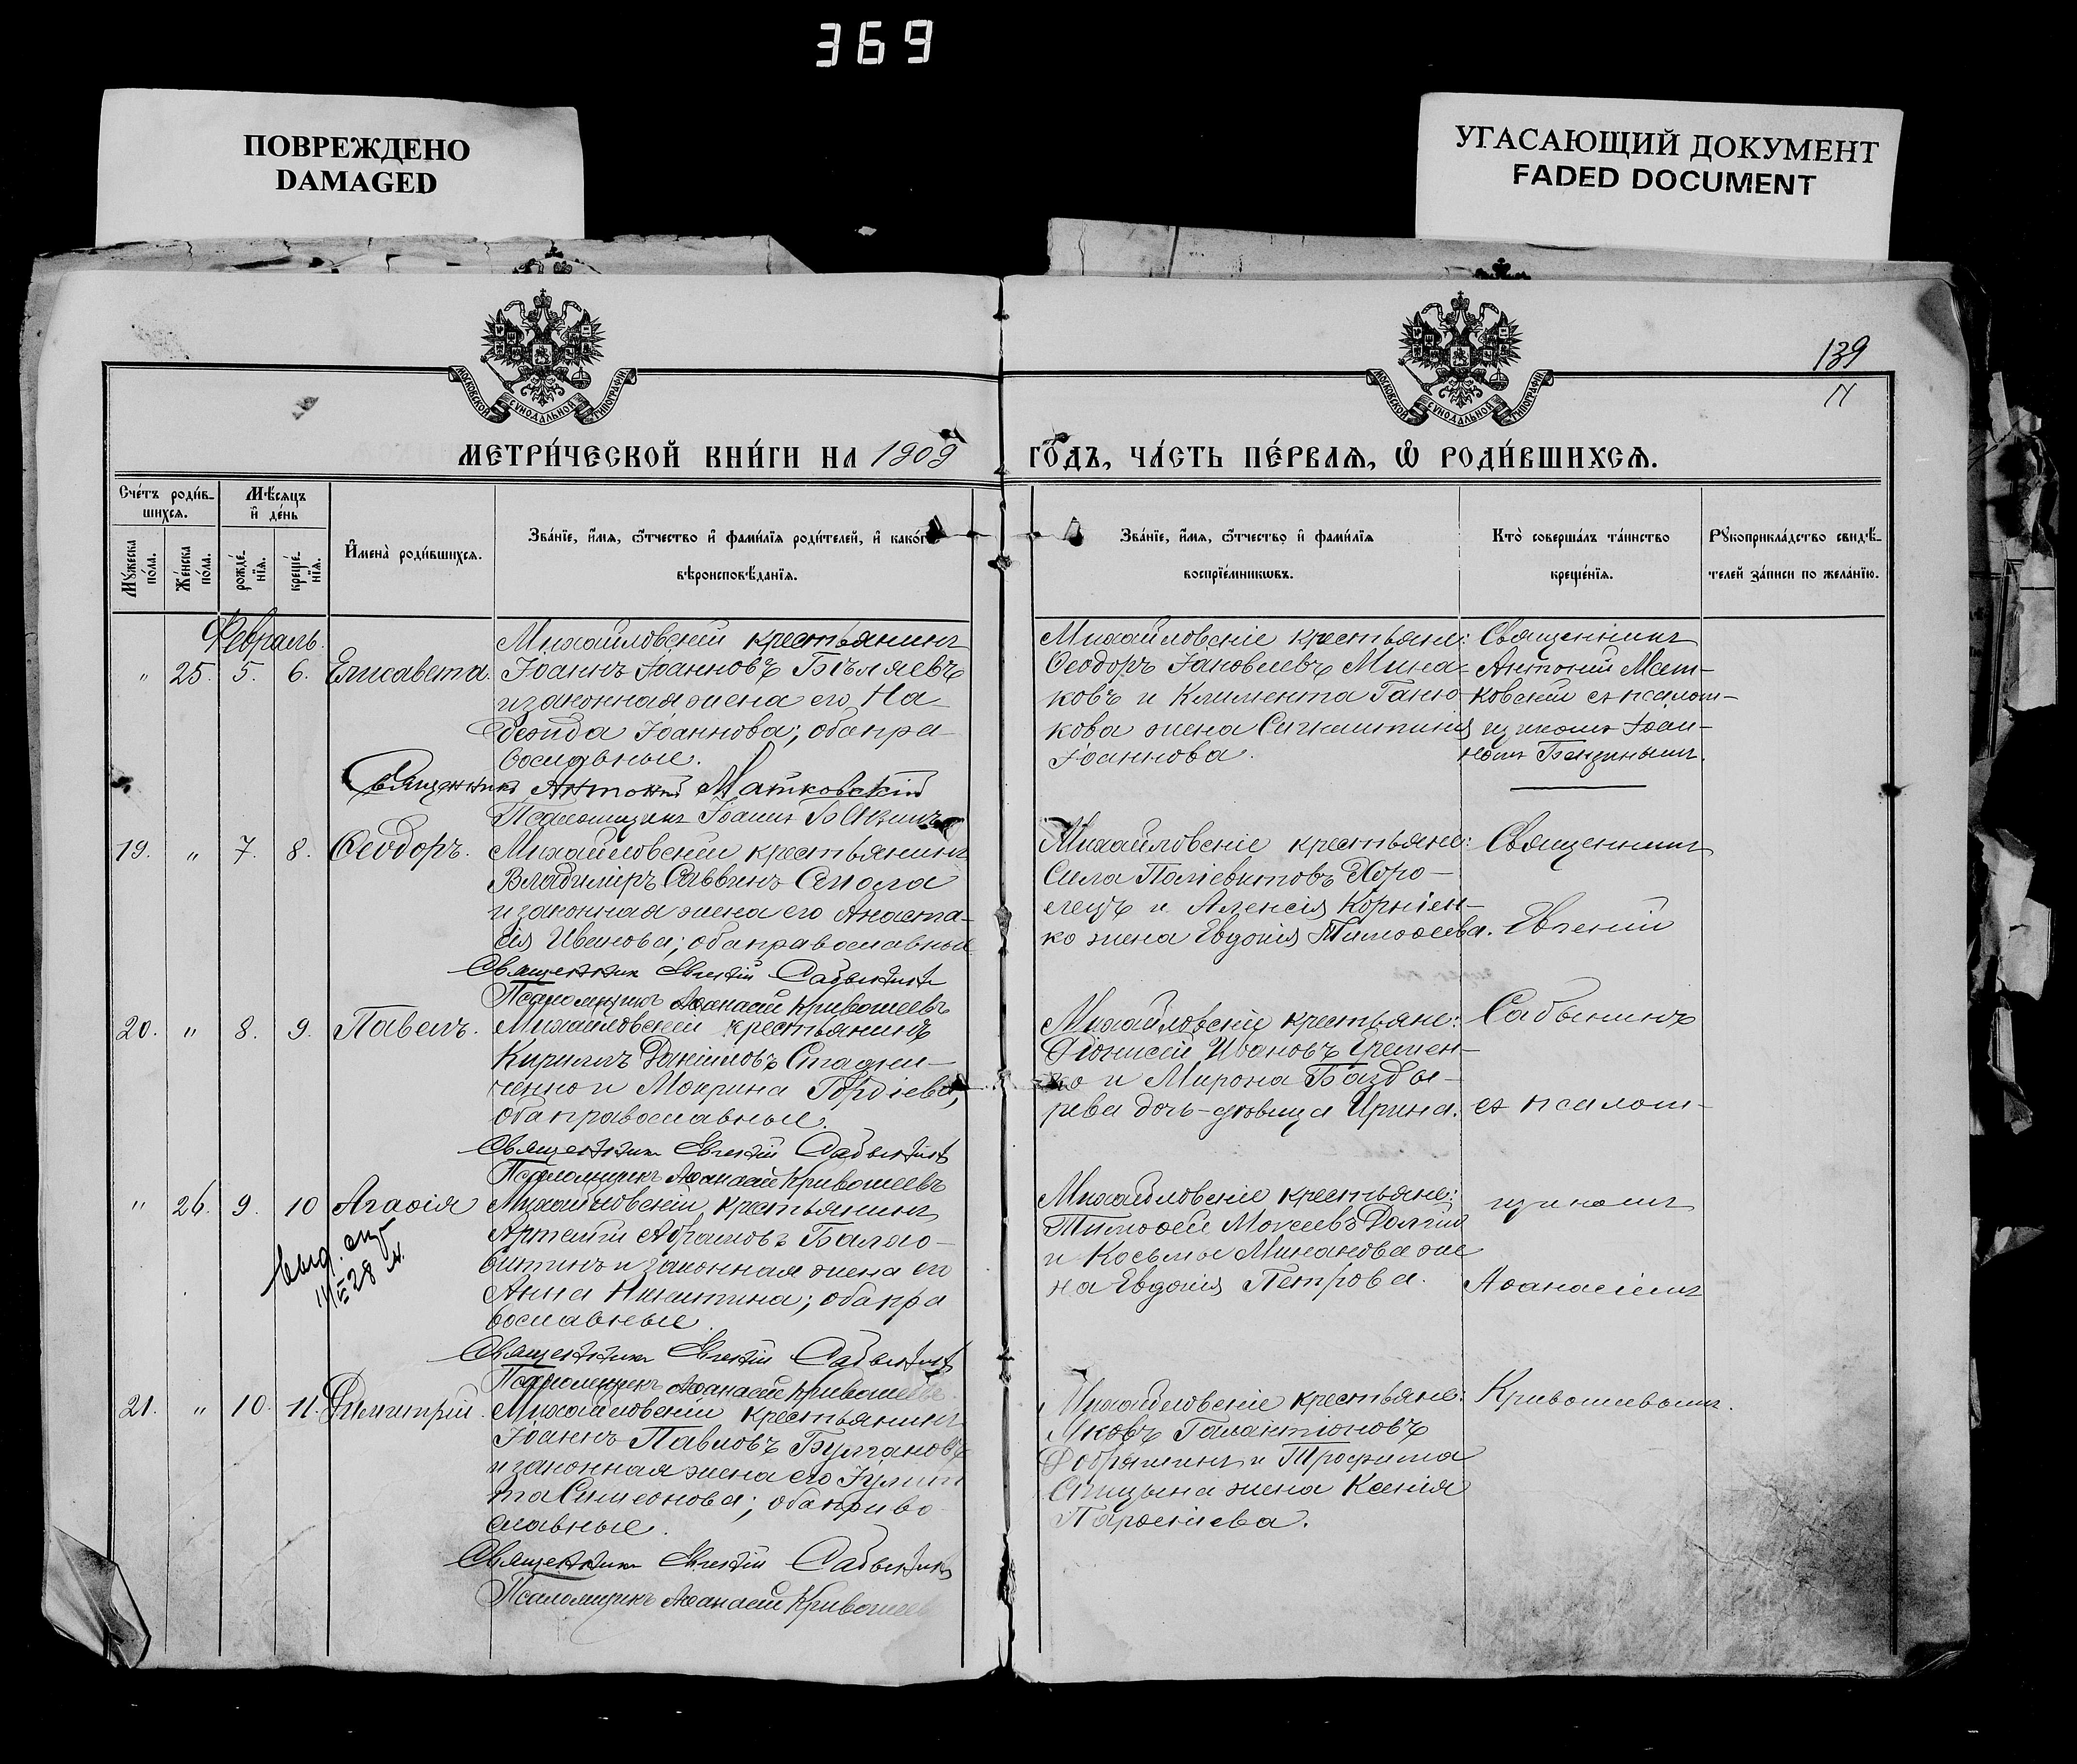 369
ПОВРЕЖДЕНО
DAMAGED
УГАСАЮЩИЙ ДОКУМЕНТ
FADED DOCUMENT
МОСКОВСКОЙ СѴНОДАЛЬНОЙ ТИПОГРАФІИ
МОСКОВСКОЙ СѴНОДАЛЬНОЙ ТИПОГРАФІИ
139
МЕТРИ́ЧЕСКОЙ КНИ́ГИ НА 1909
ГО́ДЪ, ЧА́СТЬ ПЕ́РВАѦ, Ѡ҆ РОДИ́ВШИХСѦ.
Сче́тъ роди́в-
шихсѧ.
Мѣ́сѧцъ
и҆ де́нь
Мꙋ́жеска
по́ла.
Же́нска
по́ла.
рожде́-
нїѧ.
креще́-
нїѧ.
И҆мена̀ роди́вшихсѧ.
Зва́нїе, и҆́мѧ, ѻ҆́тчество и҆ фами́лїѧ роди́телей, и҆ како́гѡ
вѣроисповѣ́данїѧ.
Зва́нїе, и҆́мѧ, ѻ҆́тчество и҆ фами́лїѧ
воспрїе́мникѡвъ.
Кто̀ соверша́лъ та́инство
креще́нїѧ.
Рꙋкоприкла́дство свидѣ́-
телей за́писи по жела́нїю.
Февраль.
" 25. 5. 6. Елисавета.
Михайловскій крестьянинъ
Іоаннъ Іоанновъ Бѣляевъ
и законная жена его На
дежда Іоаннова; оба пра-
вославные.
Священникъ Антоній Матковскій
Псаломщикъ Іоаннъ
Михайловскіе крестьяне:
Ѳеодоръ Іаковлевъ Мина-
ковъ и Климента Ганю-
кова жена
Іоаннова.
Священникъ
Антоній Мат-
ковскій съ псалом-
щикомъ Іоан-
номъ
19. " 7. 8. Ѳеодоръ.
Михайловскій крестьянинъ
Владиміръ Саввинъ
и законная жена его Анаста-
сія Иванова; оба православные
Священник Евгеній Сабынинъ
Псаломщикъ Аѳанасій Кривошеевъ
Михайловскіе крестьяне:
Сила
и Алексія Корніен-
ко жена Евдокія Тимоѳеева.
Священникъ
Евгеній
20. " 8. 9. Павелъ.
Михайловскій крестьянинъ
Кириллъ Даніиловъ Стадни-
ченко и Мокрина Гордіева,
оба православные.
Священник Евгеній Сабынинъ
Псаломщикъ Аѳанасій Кривошеевъ
Михайловскіе крестьяне:
Діонисій Ивановъ
ко и Мирона Базды-
рева дочь-дѣвица Ирина.
Сабынинъ
съ псалом-
" 26. 9. 10 Агаѳія
Михайловскій крестьянинъ
Артемій Абрамовъ
и законная жена его
Анна Никитина; оба пра
вославные.
Священник Евгеній Сабынинъ
Псаломщикъ Аѳанасій Кривошеевъ
Михайловскіе крестьяне:
Тимоѳей Моисеевъ Долгій
и Косьмы Минакова же
на Евдокія Петрова.
щикомъ
Аѳанасіемъ
21. " 10. 11. Димитрій.
Михайловскій крестьянинъ
Іоаннъ Павловъ Булгаковъ
и законная жена его Іулит
та Симеонова; оба право
славные.
Священник Евгеній Сабынинъ
Псаломщикъ Аѳанасій Кривошеев
Михайловскіе крестьяне:
Яковъ Галактіоновъ
и Трофима
жена Ксенія
Парѳеніева.
Кривошеевымъ.